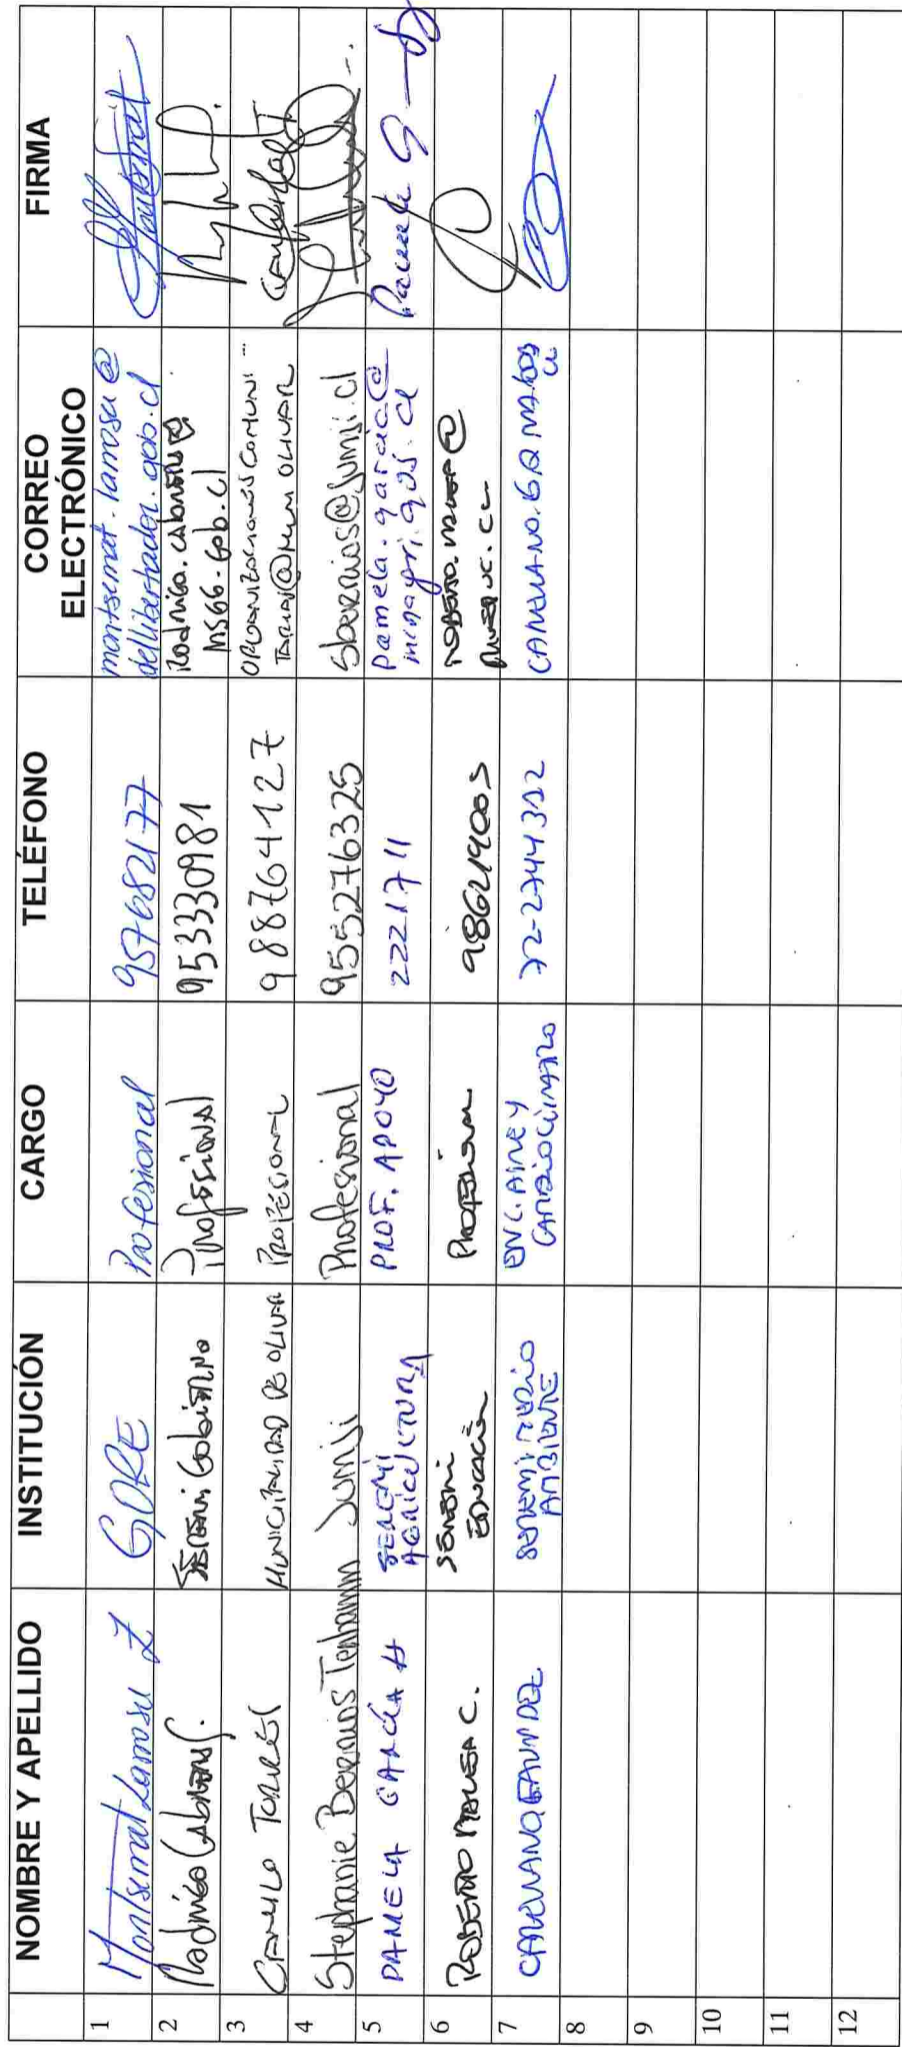 NOMBRE Y APELLIDO INSTITUCIÓN CARGO TELÉFONO CORREO ELECTRÓNICO FIRMA
1 Montserrat Larrosu Z GORE Profesional 957682177 montserrat.larrosu@
dellibertador.gob.cl
2 Rodrigo Cabrera S. Seremi Gobierno Profesional 95330981 Rodrigo.cabrera@
MSGG.Gob.cl
3 CAMILO TORRES MUNICIPALIDAD DE OLIVAR PROFESIONAL 988764127 ORGANIZACIONESCOMUNI-
TARIAS@MUNI OLIVAR
4 Stephanie Berrios Tenhamm Junji Profesional 955276325 Sberrios@junji.cl
5 PAMELA GARCÍA H SEREMI
AGRICULTURA PROF. APOYO 2221711 pamela.garcia@
minagri.gob.cl Pamela G
6 ROBERTO C. SEREMI
EDUCACIÓN Profesional ROBERTO.
7 SEREMI MEDIO
AMBIENTE ENC. AIRE Y
CAMBIO CLIMATICO 72-2744312
8
9
10
11
12